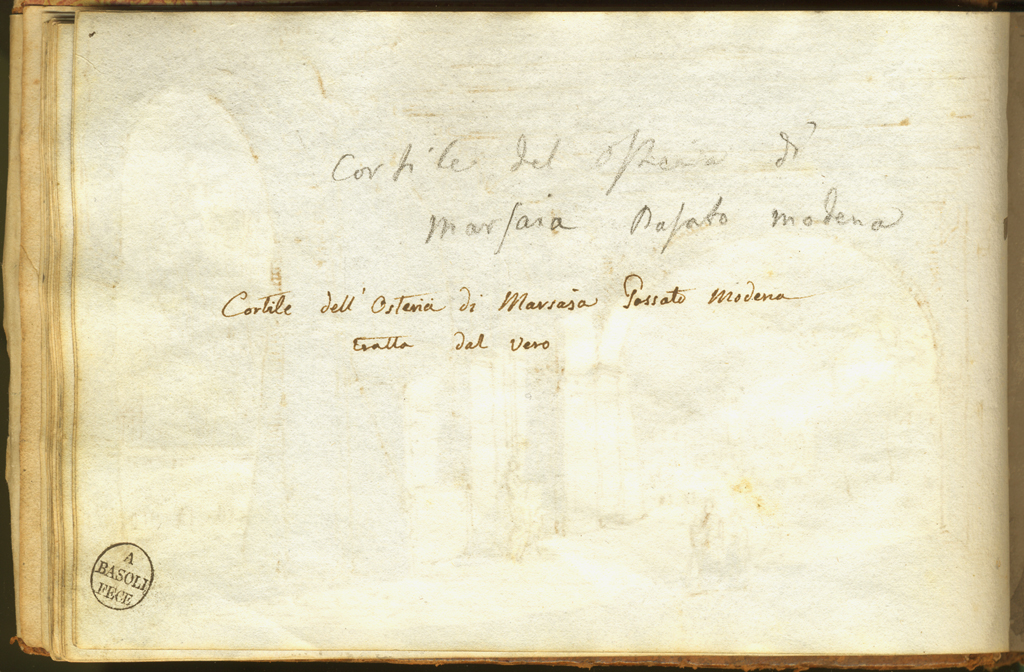 Cortile del Osteria di
Marsaia Pasato modena
Cortile dell' Osteria di Marsaja Passato Modena
tratta dal vero
A
BASOLI
FECE